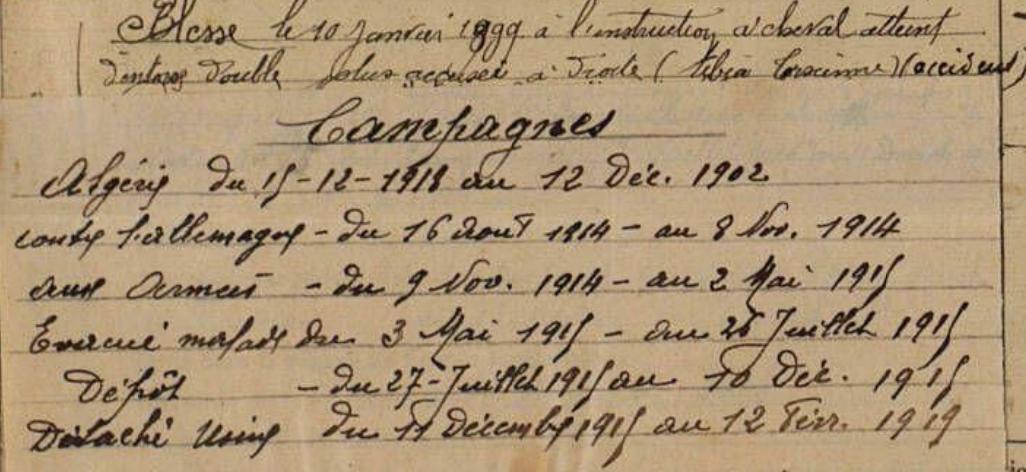 Blessé le 10 Janvier 1899 à l'instruction à cheval atteint
d'entorse double plus accusée à droite (tibia tarsienne) (accident)
Campagnes
Algérie du 15-12-1918 au 12 Déc. 1902
contre l'allemagne - du 16 Aout 1914 - au 8 Nov. 1914
aux Armées - du 9 Nov. 1914 - au 2 Mai 1915
Evacué malade du 3 Mai 1915 - au 26 Juillet 1915
Dépôt - du 27 - Juillet 1915 au 10 Déc. 1915
Détaché Usine du 11 Décembre 1915 au 12 Févr. 1919